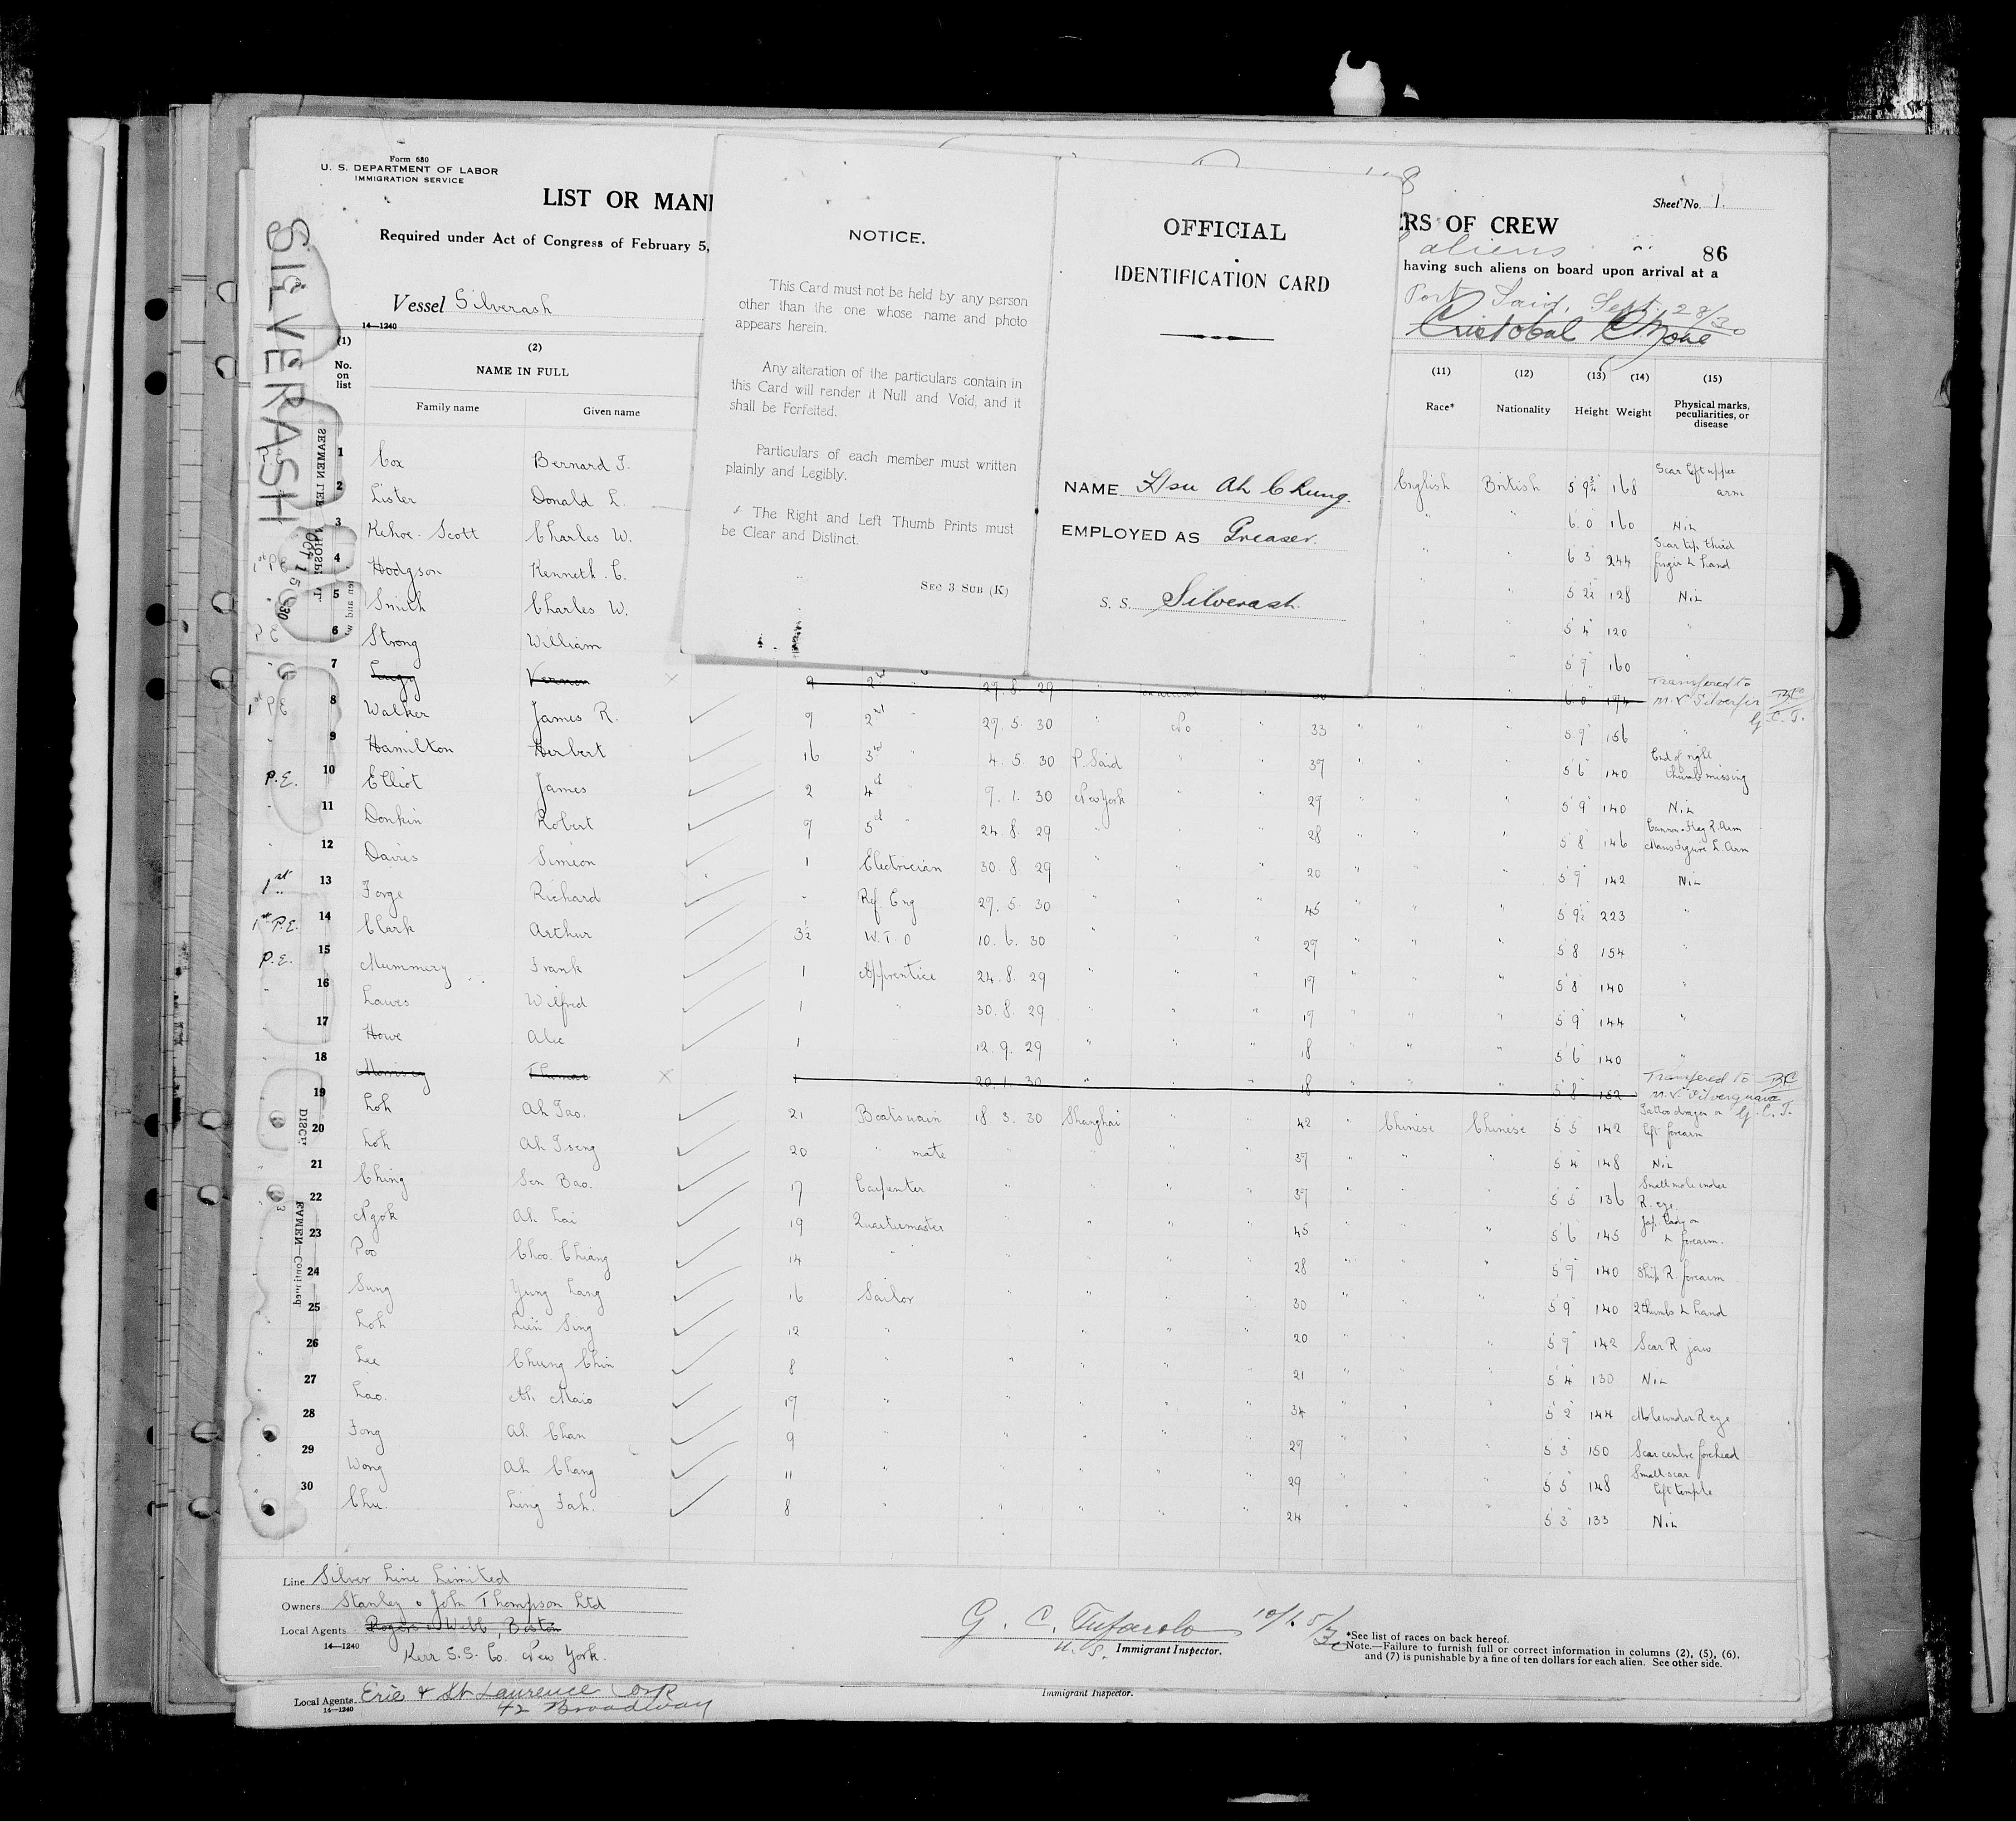 Form 680
U. S. DEPARTMENT OF LABOR
IMMIGRATION SERVICE
LIST OR MANI
Required under Act of Congress of February 5,
Vessel Silverash
14—1240
SILVERASH
OCT 15 1930
NOTICE.
This Card must not be held by any person
other than the one whose name and photo
appears herein.
Any alteration of the particulars contain in
this Card will render it Null and Void, and it
shall be Forfeited.
Particulars of each member must written
plainly and Legibly.
The Right and Left Thumb Prints must
be Clear and Distinct.
SEC 3 SUB (K)
OFFICIAL
IDENTIFICATION CARD
NAME Hsu Ah Chung.
EMPLOYED AS Greaser.
S. S. Silverash.
Sheet No. 1.
ERS OF CREW
aliens
86
having such aliens on board upon arrival at a
Port Said, Sept. 28/30
Cristobal C. Zone
(1) (2) (11) (12) (13) (14) (15)
No. on list NAME IN FULL Race* Nationality Height Weight Physical marks, peculiarities, or disease
Family name Given name
1 Cox Bernard J. English British 5 9¾ 168 Scar left upper arm
2 Lister Donald L. " " 6 0 160 Nil
3 Kehoe-Scott Charles W. " " 6 3 244 Scar tip third finger L hand
1st P.E. 4 Hodgson Kenneth C. " " 5 2½ 128 Nil
5 Smith Charles W. " " 5 4 120 "
P.E. 6 Strong William " " 5 7 160 "
7 Vernon 9 2nd " 29. 8. 29 6 0 194 Transfered to M.V. Silverfir G.C.T.
1st P.E. 8 Walker James R. 9 2nd " 29. 5. 30 " No " 33 " " " 5 9 156 "
" 9 Hamilton Herbert 16 3rd " 4. 5. 30 P. Said " " 37 " " " 5 6 140 End of right thumb missing
P.E. 10 Elliot James 2 4th " 9. 1. 30 New York " " 29 " " " 5 9 140 Nil
" 11 Donkin Robert 24. 8. 29 " " " 28 " " " 5 8 146 R. Arm L. Arm
" 12 Davies Simeon 1 Electrician 30. 8. 29 " " " 20 " " " 5 9 142 Nil
1st " 13 Forge Richard - Ref. Eng 29. 5. 30 " " " 45 " " " 5 9½ 223 "
1st P.E. 14 Clark Arthur 3½ W.T.O 10. 6. 30 " " " 27 " " " 5 8 154 "
P.E. 15 Mummery Frank 1 Apprentice 24. 8. 29 " " " 17 " " " 5 8 140 "
" 16 Laws Wilfred 1 " 30. 8. 29 " " " 19 " " " 5 9 144 "
17 Howe Alec 1 " 12. 9. 29 " " " 18 " " " 5 6 140 "
18 Morrisey Thomas 1 20. 1. 30 " " " 18 " " " 5 8 152 Transfered to M.V. Silverguava G.C.T.
19 Loh Ah Tao. 21 Boatswain 18. 3. 30 Shanghai " " 42 " Chinese Chinese 5 5 142 Tattoo dragon on left forearm
20 Loh Ah Tseng 20 " mate " " " " 37 " " " 5 4 148 Nil
21 Ching Sen Bao. 17 Carpenter " " " " 37 " " " 5 5 136 Small mole under R. eye.
22 Ngok Ah Lai 19 Quartermaster " " " 45 " " " 5 6 145 Jap. Lady on L forearm.
23 Poo Choo Chiang 14 " " " " " 28 " " " 5 7 140 Ship R. forearm
24 Sung Yung Lang 16 Sailor " " " " 30 " " " 5 9 140 2 thumbs L hand
25 Loh Lien Sing 12 " " " " 20 " " 5 7 142 Scar R jaw
26 Lee Chung Chin 8 " " " " " 21 " " " 5 4 130 Nil
27 Lao. Ah Maio 17 " " " " " 34 " " " 5 2 144 Mole under R eye
28 Fong Ah Chan 9 " " " " " 27 " " " 5 3 150 Scar centre forehead
29 Wong Ah Chang 11 " " " " " 29 " " " 5 5 148 Small scar left temple
30 Chu. Ling Fah. 8 " " " " " 24 " " " 5 3 133 Nil
Line Silver Line Limited
Owners Stanley & John Thompson Ltd
Local Agents Rogers & Webb, Boston
14—1240
Kerr S.S. Co. New York.
G. C. Tufarolo 10/15/30
U. S. Immigrant Inspector.
*See list of races on back hereof.
Note.—Failure to furnish full or correct information in columns (2), (5), (6),
and (7) is punishable by a fine of ten dollars for each alien. See other side.
Local Agents Erie & St Laurence Corp
14—1240
42 Broadway
Immigrant Inspector.